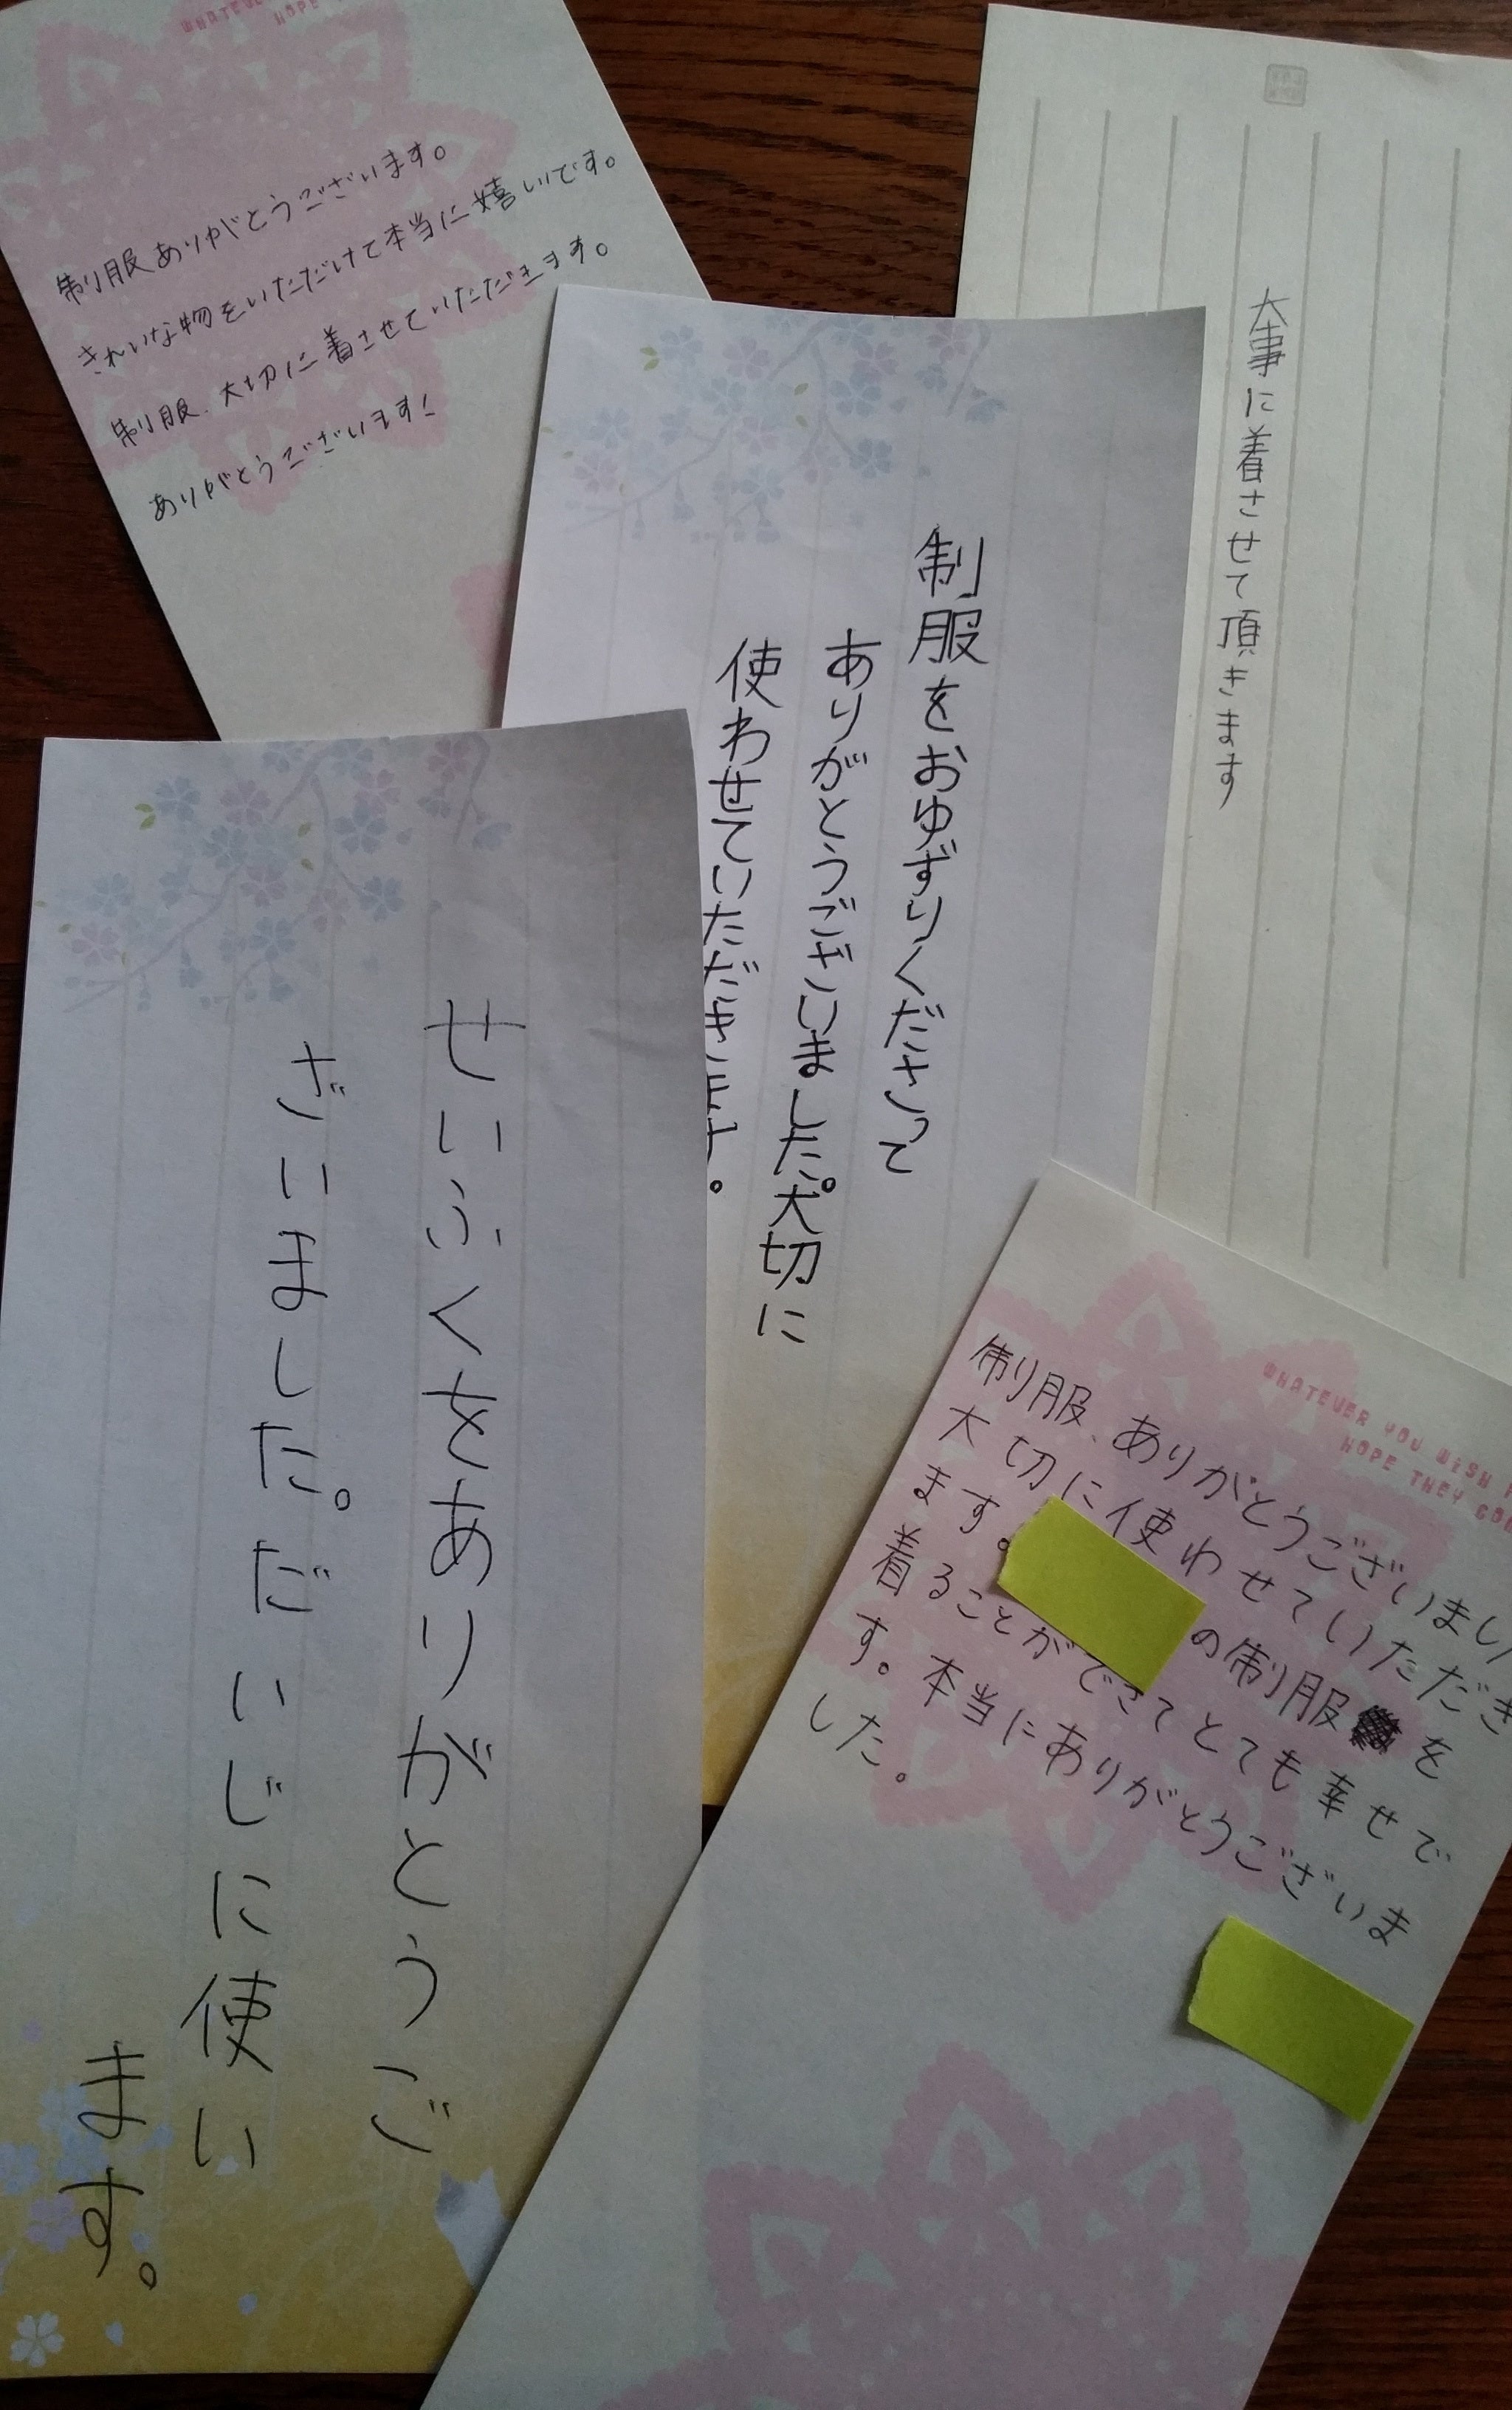 WHATEVER
HOPE
制服ありがとうございます。
きれいな物をいただけて本当に嬉しいです。
制服、大切に着させていただきます。
ありがとうございます!
大事に着させて頂きます
制服をおゆずりくださって
ありがとうございました。大切に
使わせていただきます。
せいふくをありがとうご
ざいました。だいじに使い
ます。
WHATEVER YOU WISH
HOPE THEY
制服、ありがとうございまし
大切に使わせていただき
ます。
の制服を
着ることができてとても幸せで
す。本当にありがとうございま
した。